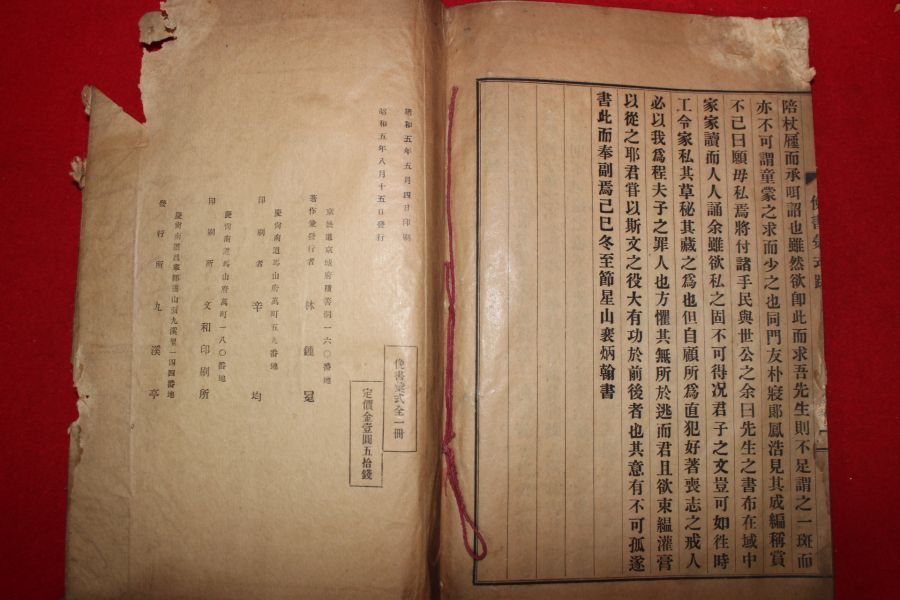 陪杖屨而承呾詔也雖然欲卽此而求吾先生則不足謂之一斑而
亦不可謂童蒙之求而少之也同門友朴寢郞鳳浩見其成編稱賞
不已曰願毋私焉將付諸手民與世公之余曰先生之書布在域中
家家讀而人人誦余雖欲私之固不可得况君子之文豈可如徃時
工令家私其草秘其藏之爲也但自顧所爲直犯好著喪志之戒人
必以我爲程夫子之罪人也方懼其無所於逃而君且欲束縕灌膏
以從之耶君嘗以斯文之役大有功於前後者也其意有不可孤遂
書此而奉副焉己巳冬至節星山裵炳翰書
俛書彙式全一冊
定價金壹圓五拾錢
昭和五年五月四日印刷
昭和五年八月十五日發行
京畿道京城府積善洞一六〇番地
著作兼發行者 林鍾冕
慶尙南道馬山府萬町五九番地
印刷者 辛均
慶尙南道馬山府萬町一八〇番地
印刷所 文和印刷所
慶尙南道昌寧郡
發行所 九溪亭